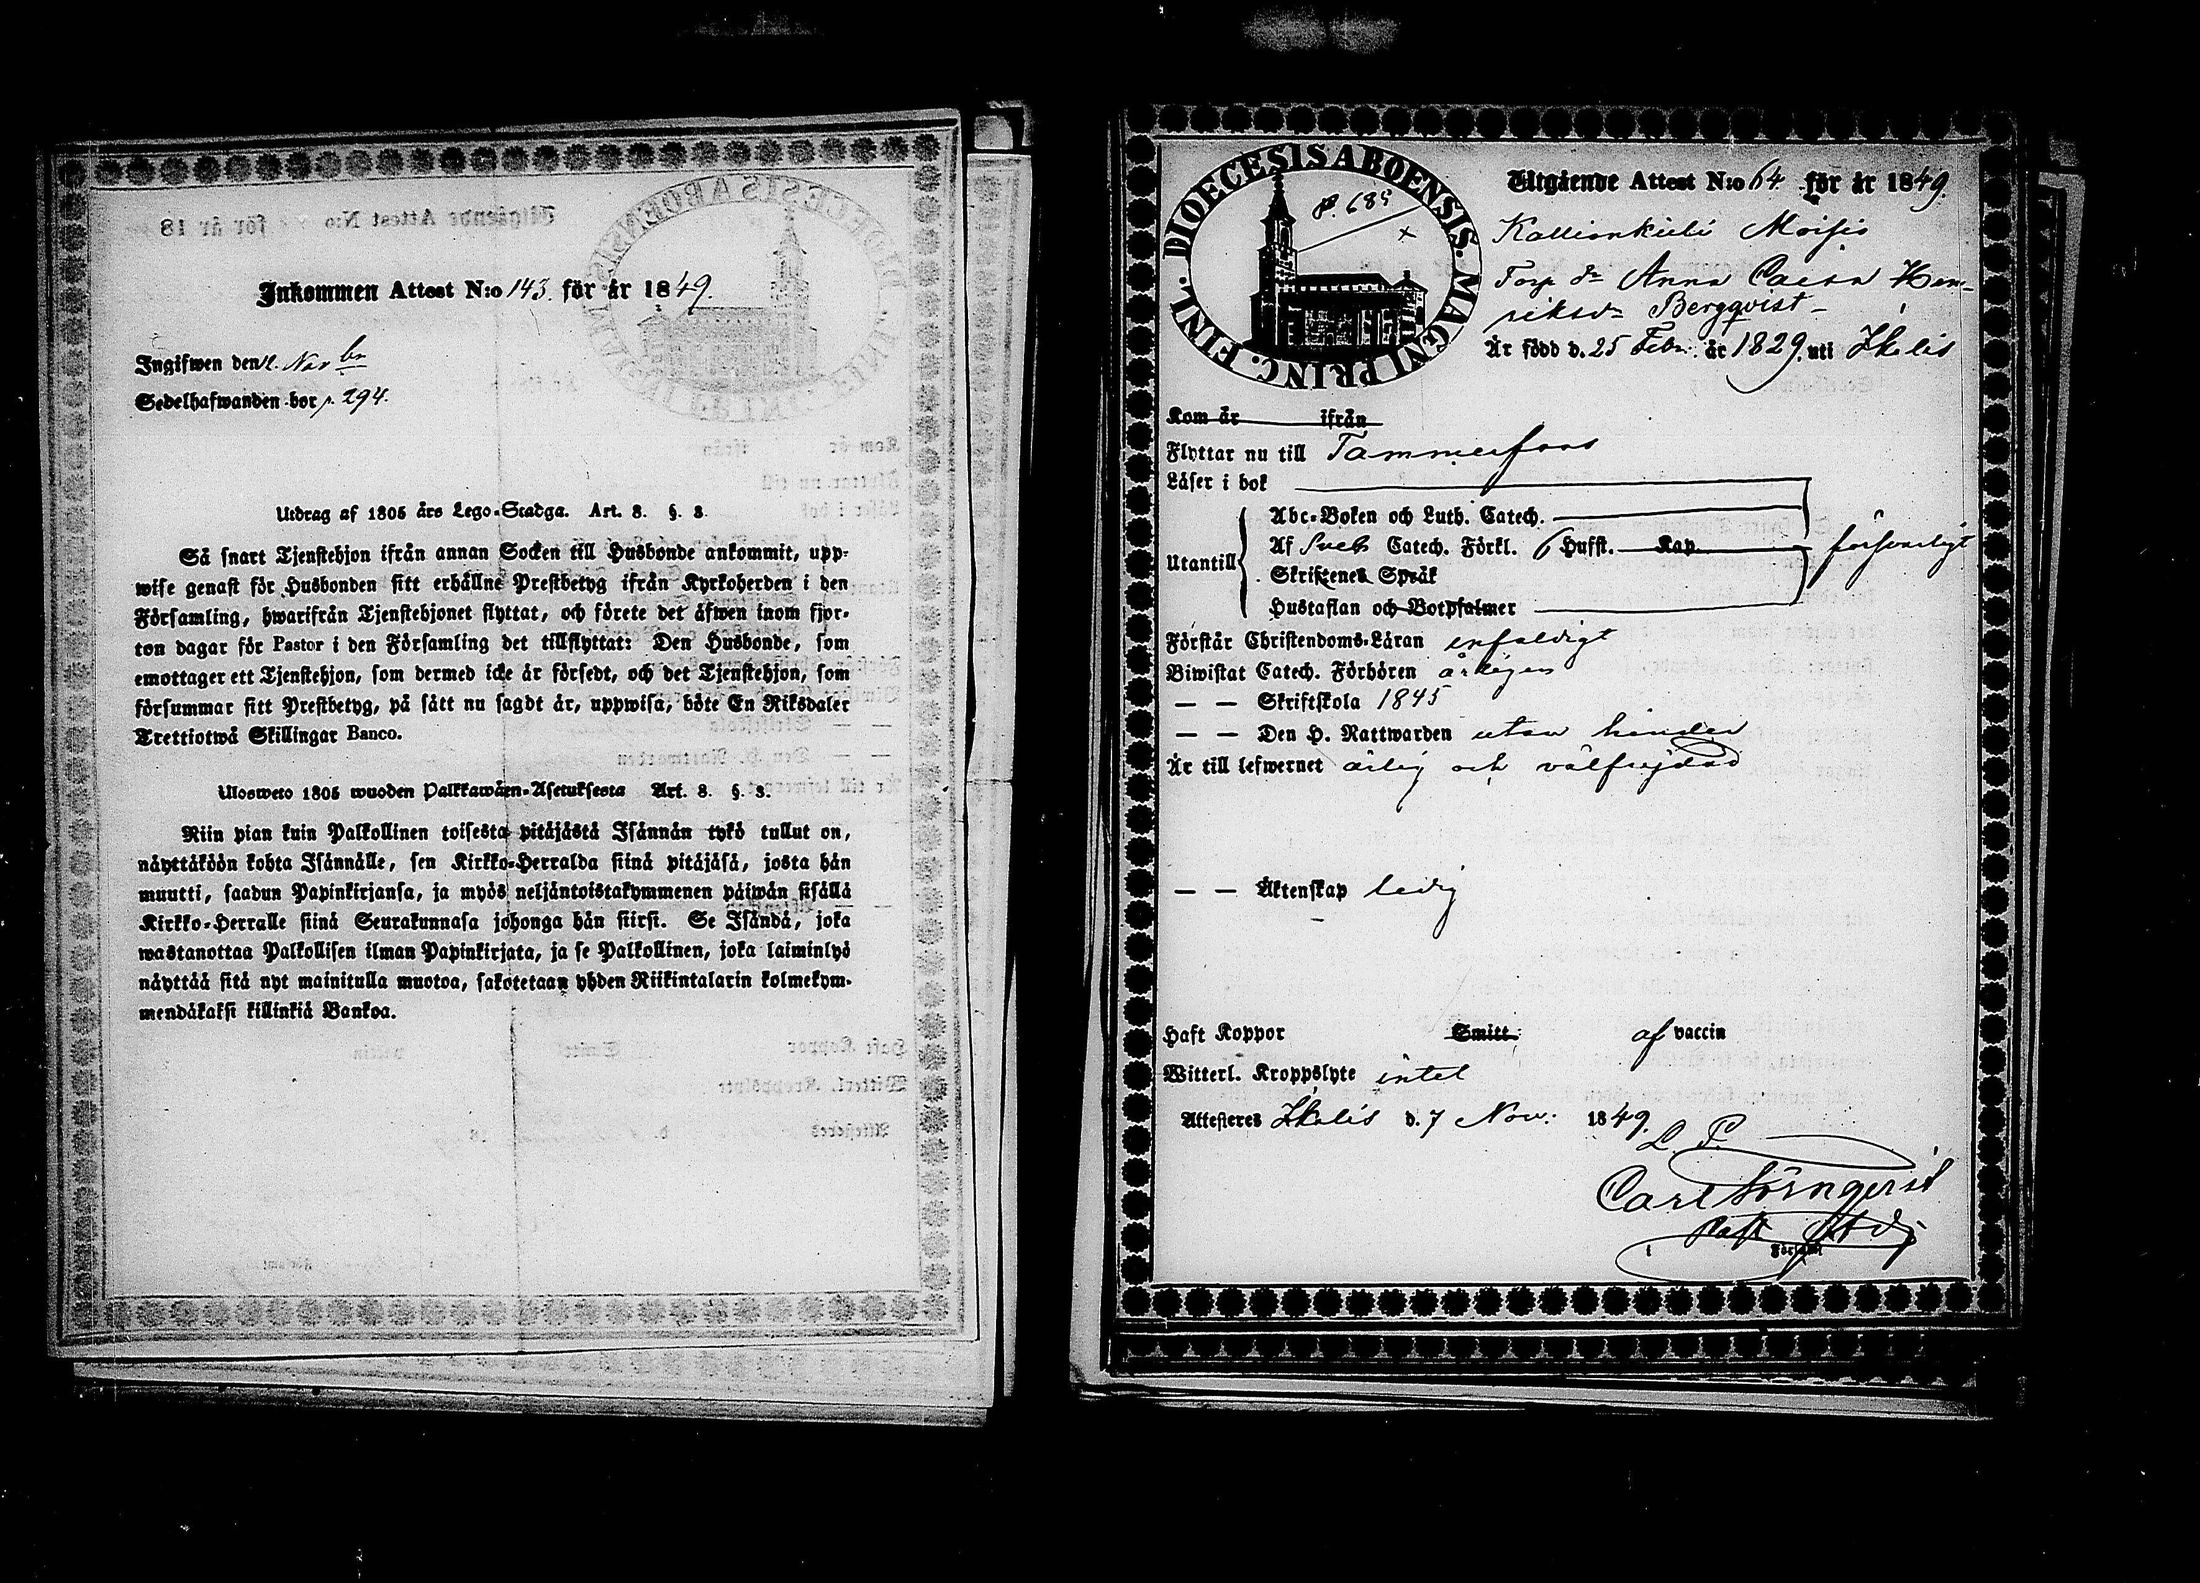 Inkommen Attest N:o 143. för år 1849.
Ingifwen den Novbr
Sedelhafwanden bor p. 294.
Utdrag af 1805 års Lego-Stadga. Art. 8. §. 8.
Så snart Tjenstehjon ifrån annan Socken till Husbonde ankommit, upp-
wise genast för Husbonden sitt erhållne Prestbetyg ifrån Kyrkoherden i den
Församling, hwarifrån Tjenstehjonet flyttat, och förete det äfwen inom fjor-
ton dagar för Pastor i den Församling det tillflyttat: Den Husbonde, som
emottager ett Tjenstehjon, som dermed icke är försedt, och det Tjenstehjon, som
försummar sitt Prestbetyg, på sätt nu sagdt är, uppwisa, böte En Riksdaler
Trettiotwå Skillingar Banco.
Ulosweto 1805 wuoden Palkkawäen-Asetuksesta Art. 8. §. 8.
Niin pian kuin Palkollinen toisesta pitäjästä Isännän tykö tullut on,
näyttäköön kohta Isännälle, sen Kirkko-Herralda siinä pitäjäsä, josta hän
muutti, saadun Papinkirjansa, ja myös neljäntoistakymmenen päiwän sisällä
Kirkko-Herralle siinä Seurakunnasa johonga hän siirsi. Se Isändä, joka
wastanottaa Palkollisen ilman Papinkirjata, ja se Palkollinen, joka laiminlyö
näyttää sitä nyt mainitulla muotoa, sakotetaan yhden Riikintalarin kolmekym-
mendäkaksi killinkiä Bankoa.
DIOECESIS ABOENSIS. MAGNI PRINC. FINL.
p. 685
Utgående Attest N:o 64. för år 1849.
Kallionkieli Moisio
Torp dr Anna Caesa Hen-
riksdr Bergqvist
Är född d. 25 Febr. år 1829. uti Ikalis
Kom år ifrån
Flyttar nu till Tammerfors
Läser i bok
Utantill
Abc-Boken och Luth. Catech.
Af Sveb Catech. Förkl. 6 Hufst. Kap. försvarligt
Skriftenes Språk
Hustaflan och Botpsalmer
Förstår Christendoms-Läran enfaldigt
Biwistat Catech. Förhören årligen
— — Skriftskola 1845
— — Den H. Nattwarden utan hinder
Är till lefwernet ärlig och välfrejdad
— — Äktenskap ledig
Haft Koppor Smitt: af vaccin
Witterl. Kroppslyte intet
Attesteres Ikalis d. 7 Nov: 1849.
L. P.
Carl Törnqvist
Past Adj